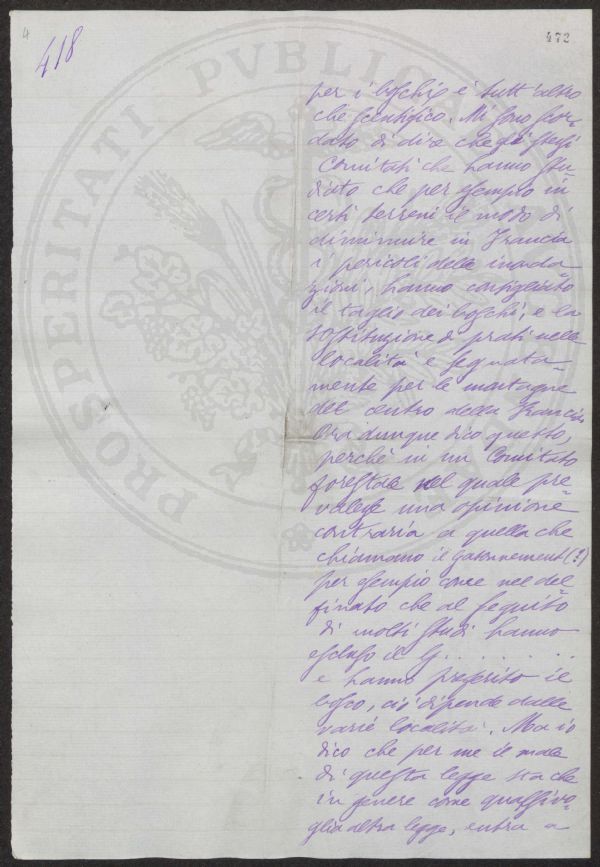 4
418
472
PROSPERITATI PVBLICAE
per i boschi e tutt'altro
che scientifico. Mi sono scor=
dato di dire che gli stessi
Comitati che hanno stu=
diato che per esempio in
certi terreni il modo di
diminuire in Francia
i pericoli delle inonda
zioni, hanno consigliato
il taglio dei boschi, e la
sostituzione di prati nelle
località e segnata=
mente per le montagne
del centro della Francia
Ora dunque dico questo,
perchè in un Comitato
forestale nel quale pre=
valesse una opinione
contraria a quella che
chiamano il gazonnement (?)
per esempio come nel del=
finato che al seguito
di molti studi hanno
escluso il G. . . . . . .
e hanno preferito il
bosco, ciò dipende dalle
varie località. Ma io
dico che per me il male
di questa legge sta che
in genere come qualsivo=
glia altra legge, entra a